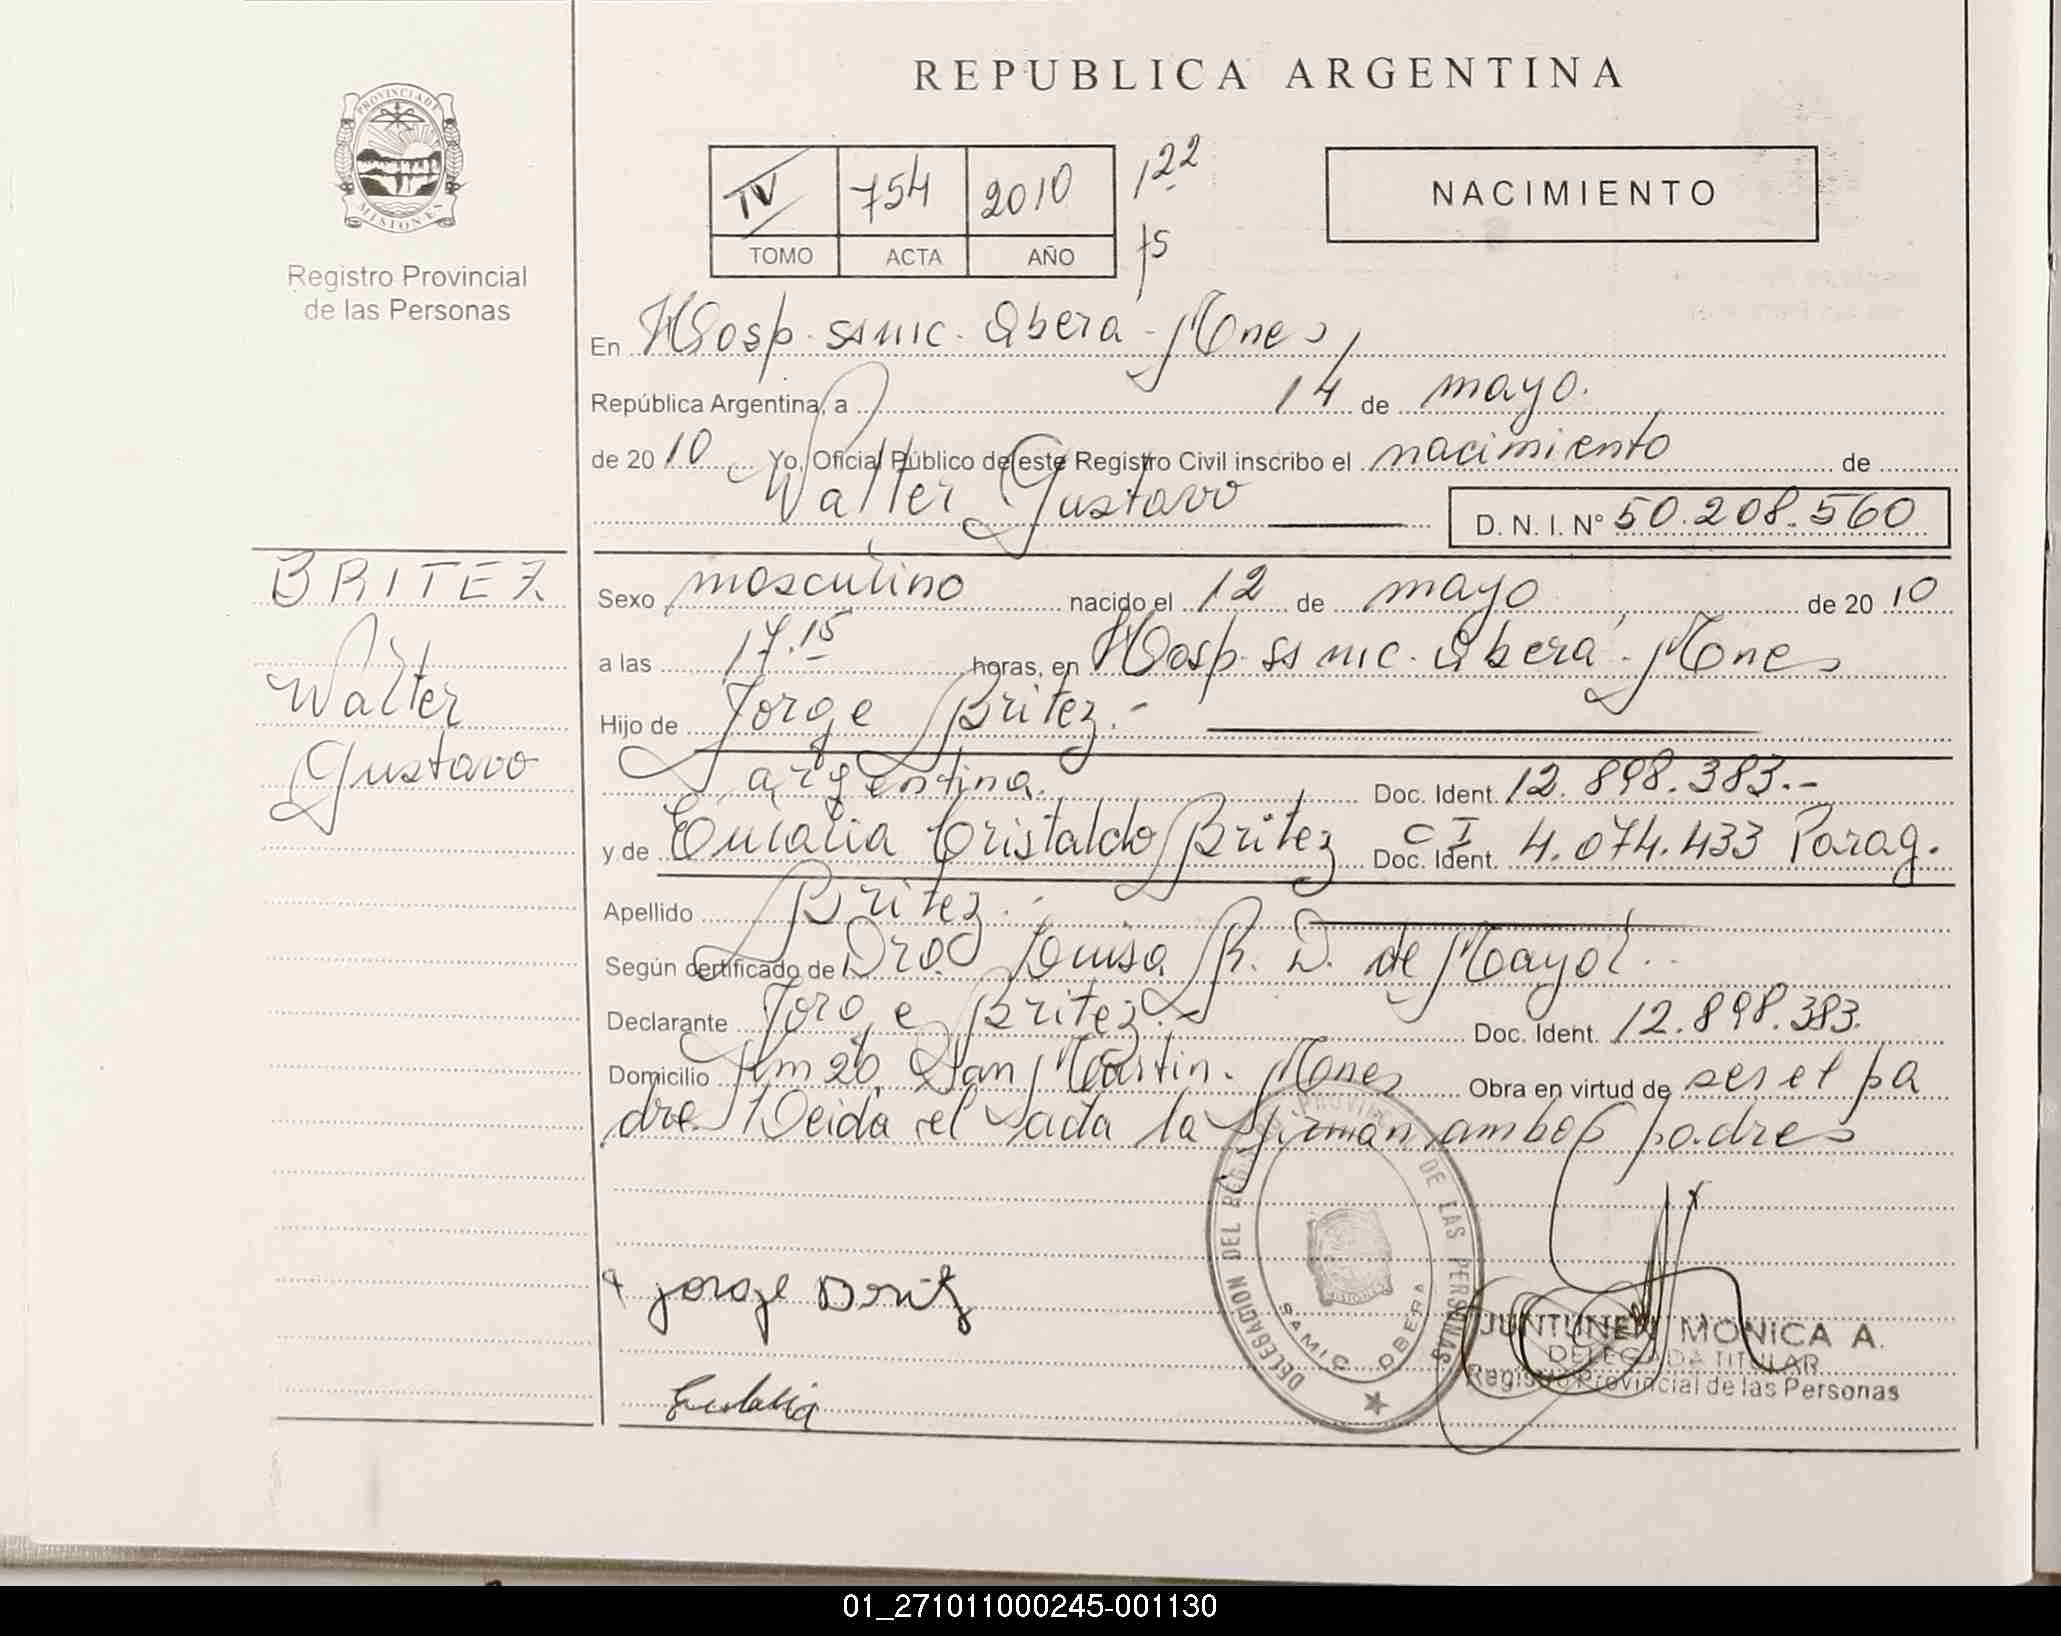 REPUBLICA ARGENTINA
PROVINCIA DE
MISIONES
Registro Provincial
de las Personas
TV 754 2010
TOMO ACTA AÑO
122
75
NACIMIENTO
En Hosp. SSMIC. Oberá - Mnes,
República Argentina, a 14 de mayo.
de 20 10 Yo, Oficial Público de este Registro Civil inscribo el nacimiento de
Walter Gustavo D. N. I. N° 50.208.560
BRITEZ
Walter
Gustavo
Sexo masculino nacido el 12 de mayo de 20 10
a las 17.15 horas, en Hosp. SSMIC. Oberá - Mnes
Hijo de Jorge Britez.-
argentina. Doc. Ident. 12.898.383.-
y de Eulalia Cristaldo Britez Doc. Ident. CI 4.074.433 Parag.
Apellido Britez.
Según certificado de Dra. Luisa R. D. de Mayol.
Declarante Jorge Britez.- Doc. Ident. 12.898.383.
Domicilio Km 26, San Martín. Mnes Obra en virtud de ser el pa
dre. Leida el acta la firman ambos padres
Jorge Britz
Eulalia
DELEGACION DEL REG. PROVINC. DE LAS PERSONAS
SAMIC OBERA
JUNTUNEN MONICA A.
DELEGADA TITULAR
Registro Provincial de las Personas
01_271011000245-001130